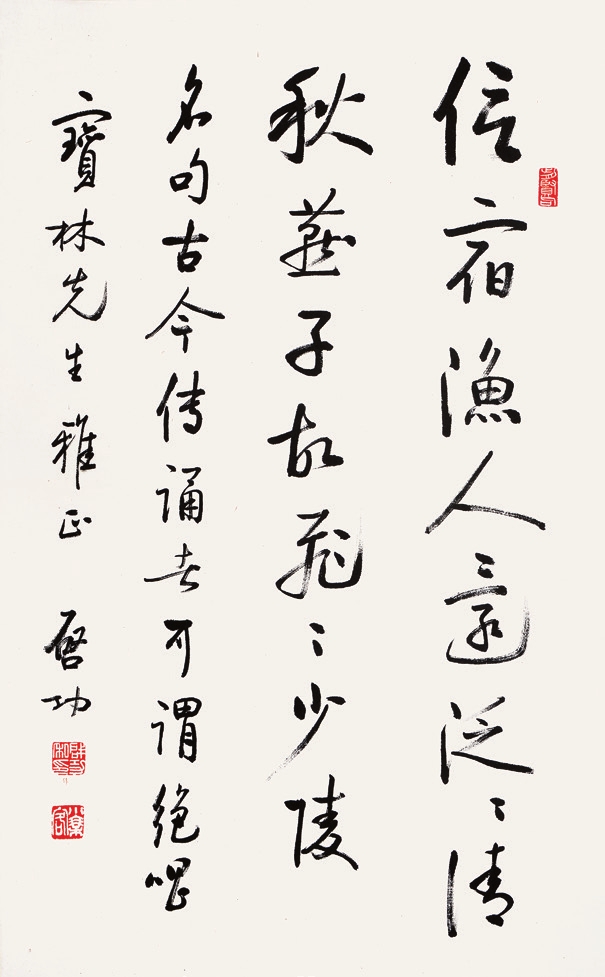 信宿漁人還泛〻清
秋燕子故飛〻少陵
名句古今傳誦者可謂絶唱
寶林先生雅正 啓功